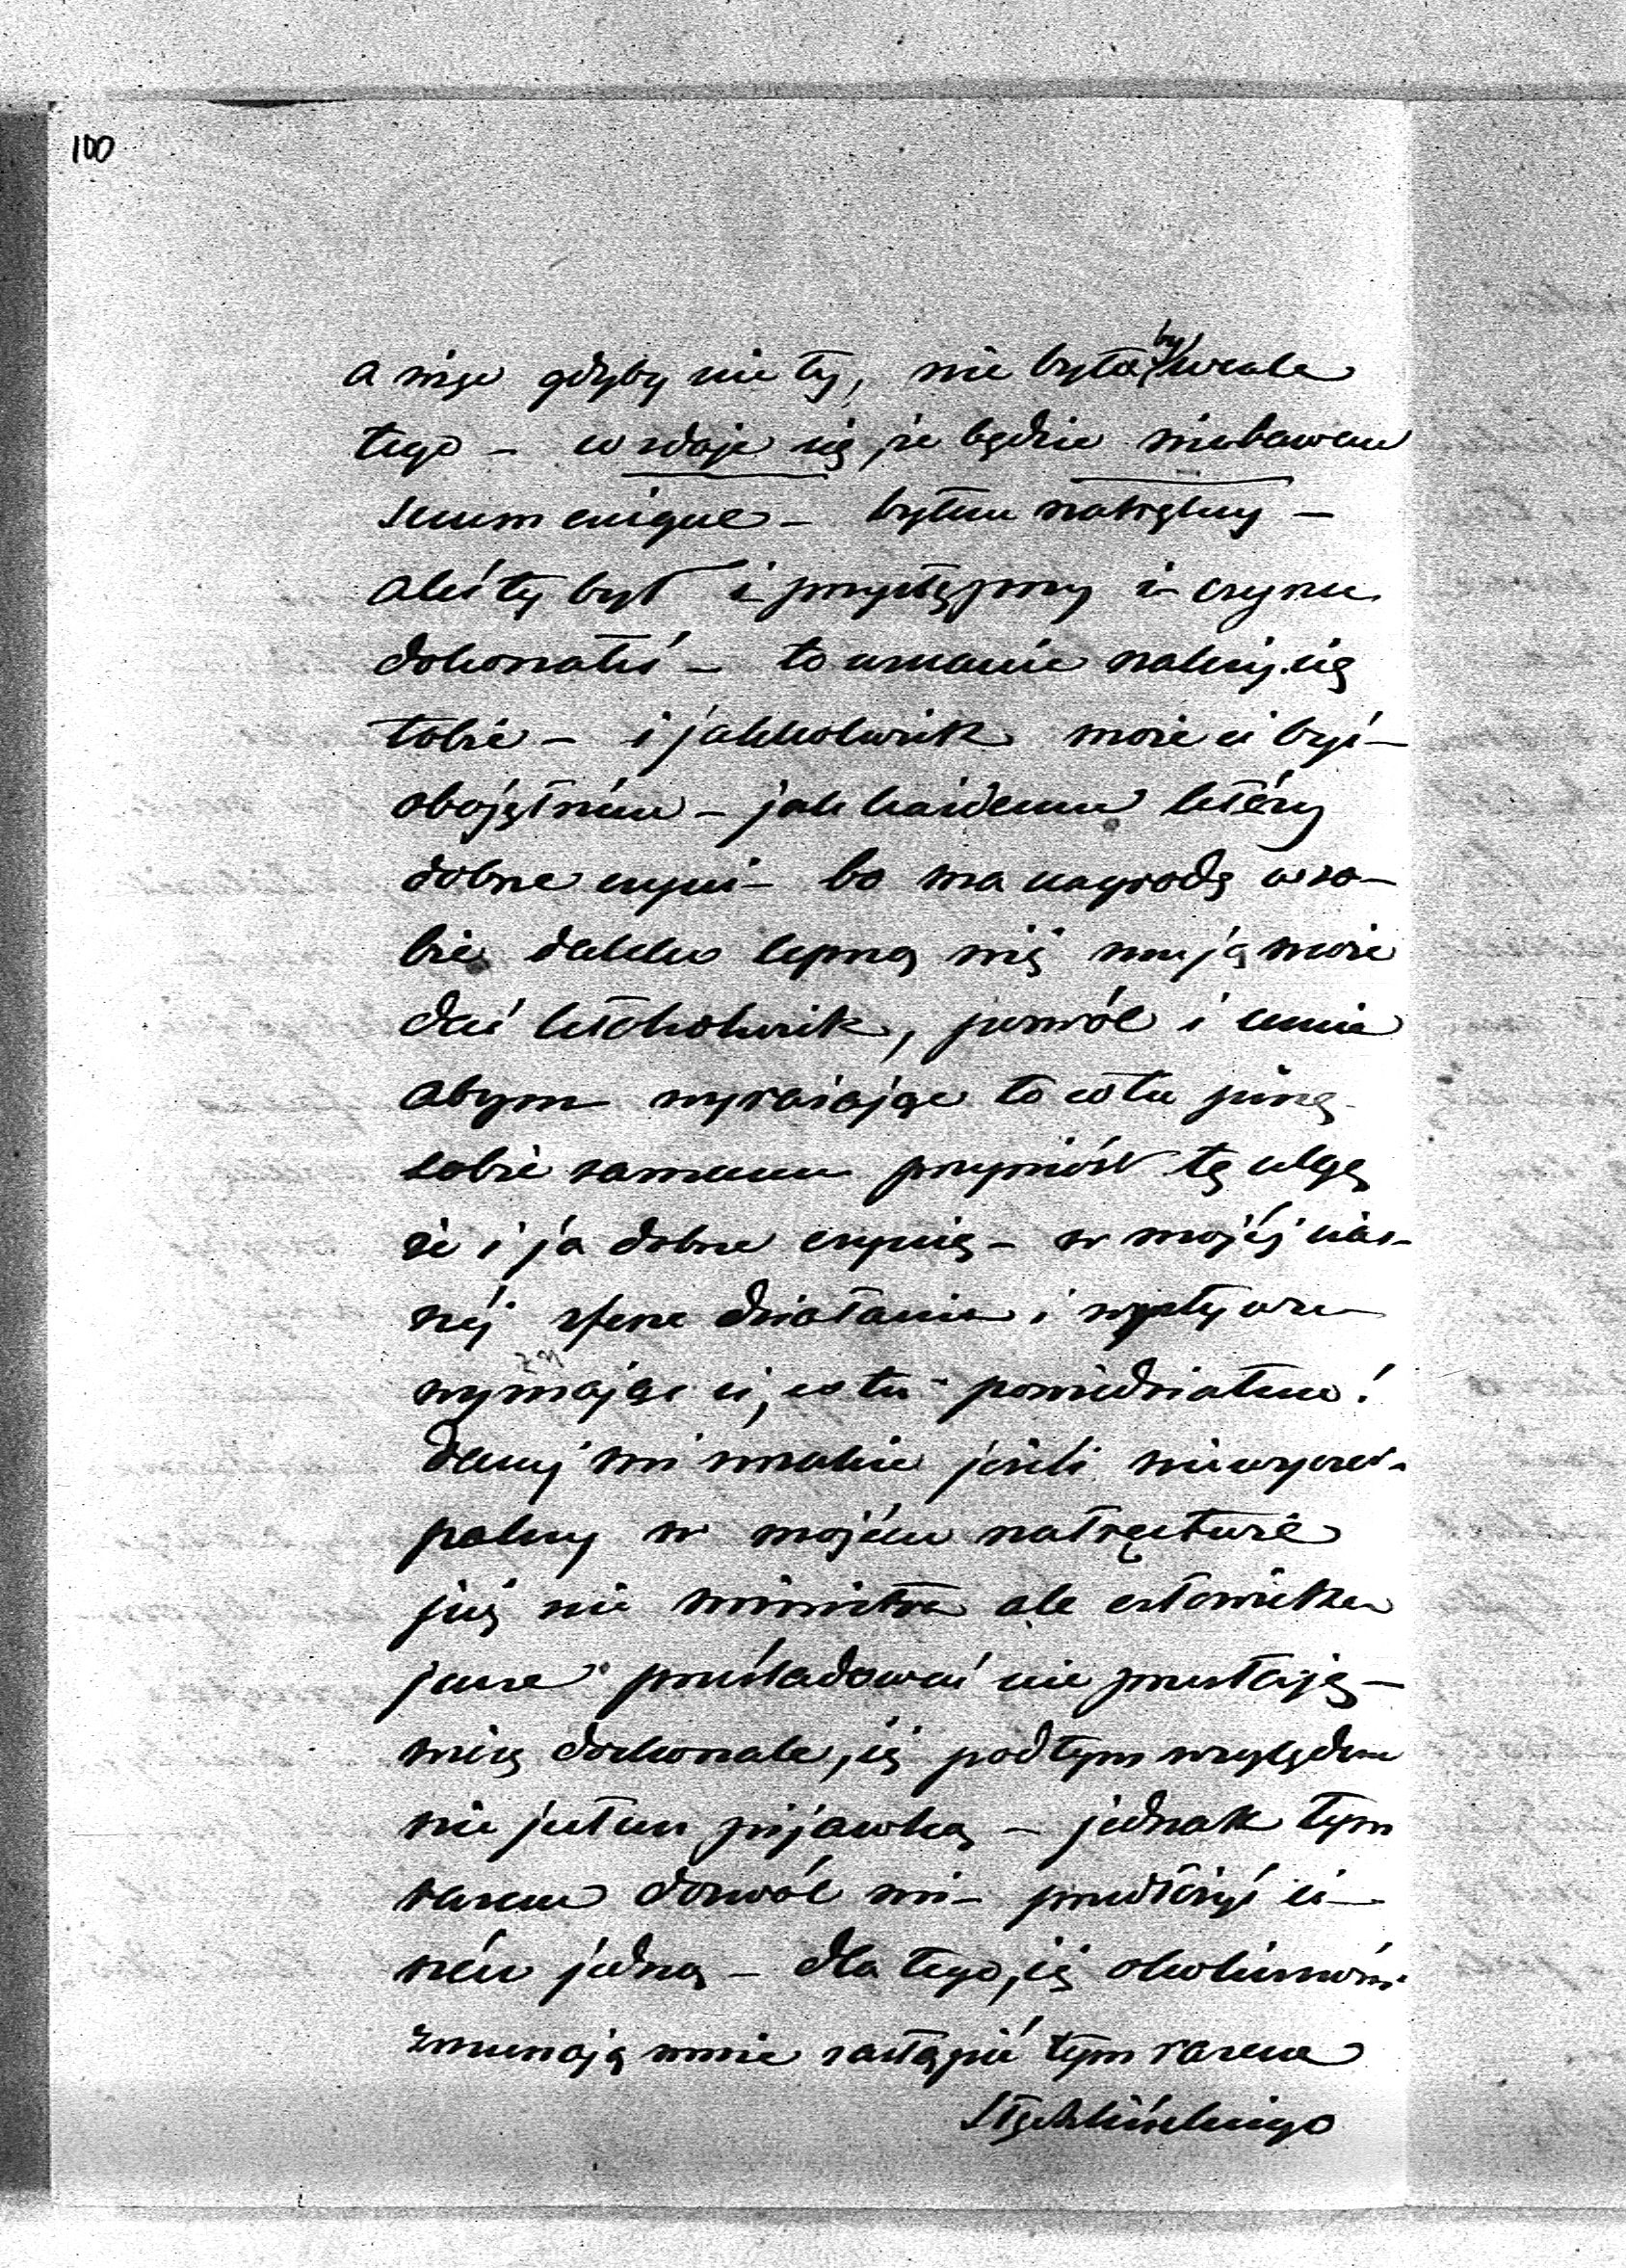 100
a więc gdyby nie ty, nie byłoby wcale
tego – co zdaje się, że będzie niebawem
suum cuique – byłem natrętny –
aleś ty był i przystępny i czynu
dokonałeś – to uznanie należy się
tobie – i jakkolwiek może ci być –
obojętném – jak każdemu który
dobrze czyni – bo ma nagrodę w so–
bie daleko lepszą niż mu ją może
dać ktokolwiek, pozwól i mnie
abym wyrażając to co tu piszę
sobie samemu przyniósł tę ulgę
że i ja dobrze czynię – w mojéj cias–
néj sferze działania i wpływu
wyznając ci, co tu powiedziałem!
Daruj mi wszakże jeżeli niewyczer–
palny w mojém natręctwie
już nie ministra ale człowieka
jeszcze prześladować nie przestaję –
wiesz doskonale, iż pod tym względem
nie jestem pijawką – jednak tym
razem dozwól mi – przedłożyć ci –
rzecz jedną – dla tego, iż okoliczności
zmuszają mnie zastąpić tym razem
Stęchlińskiego